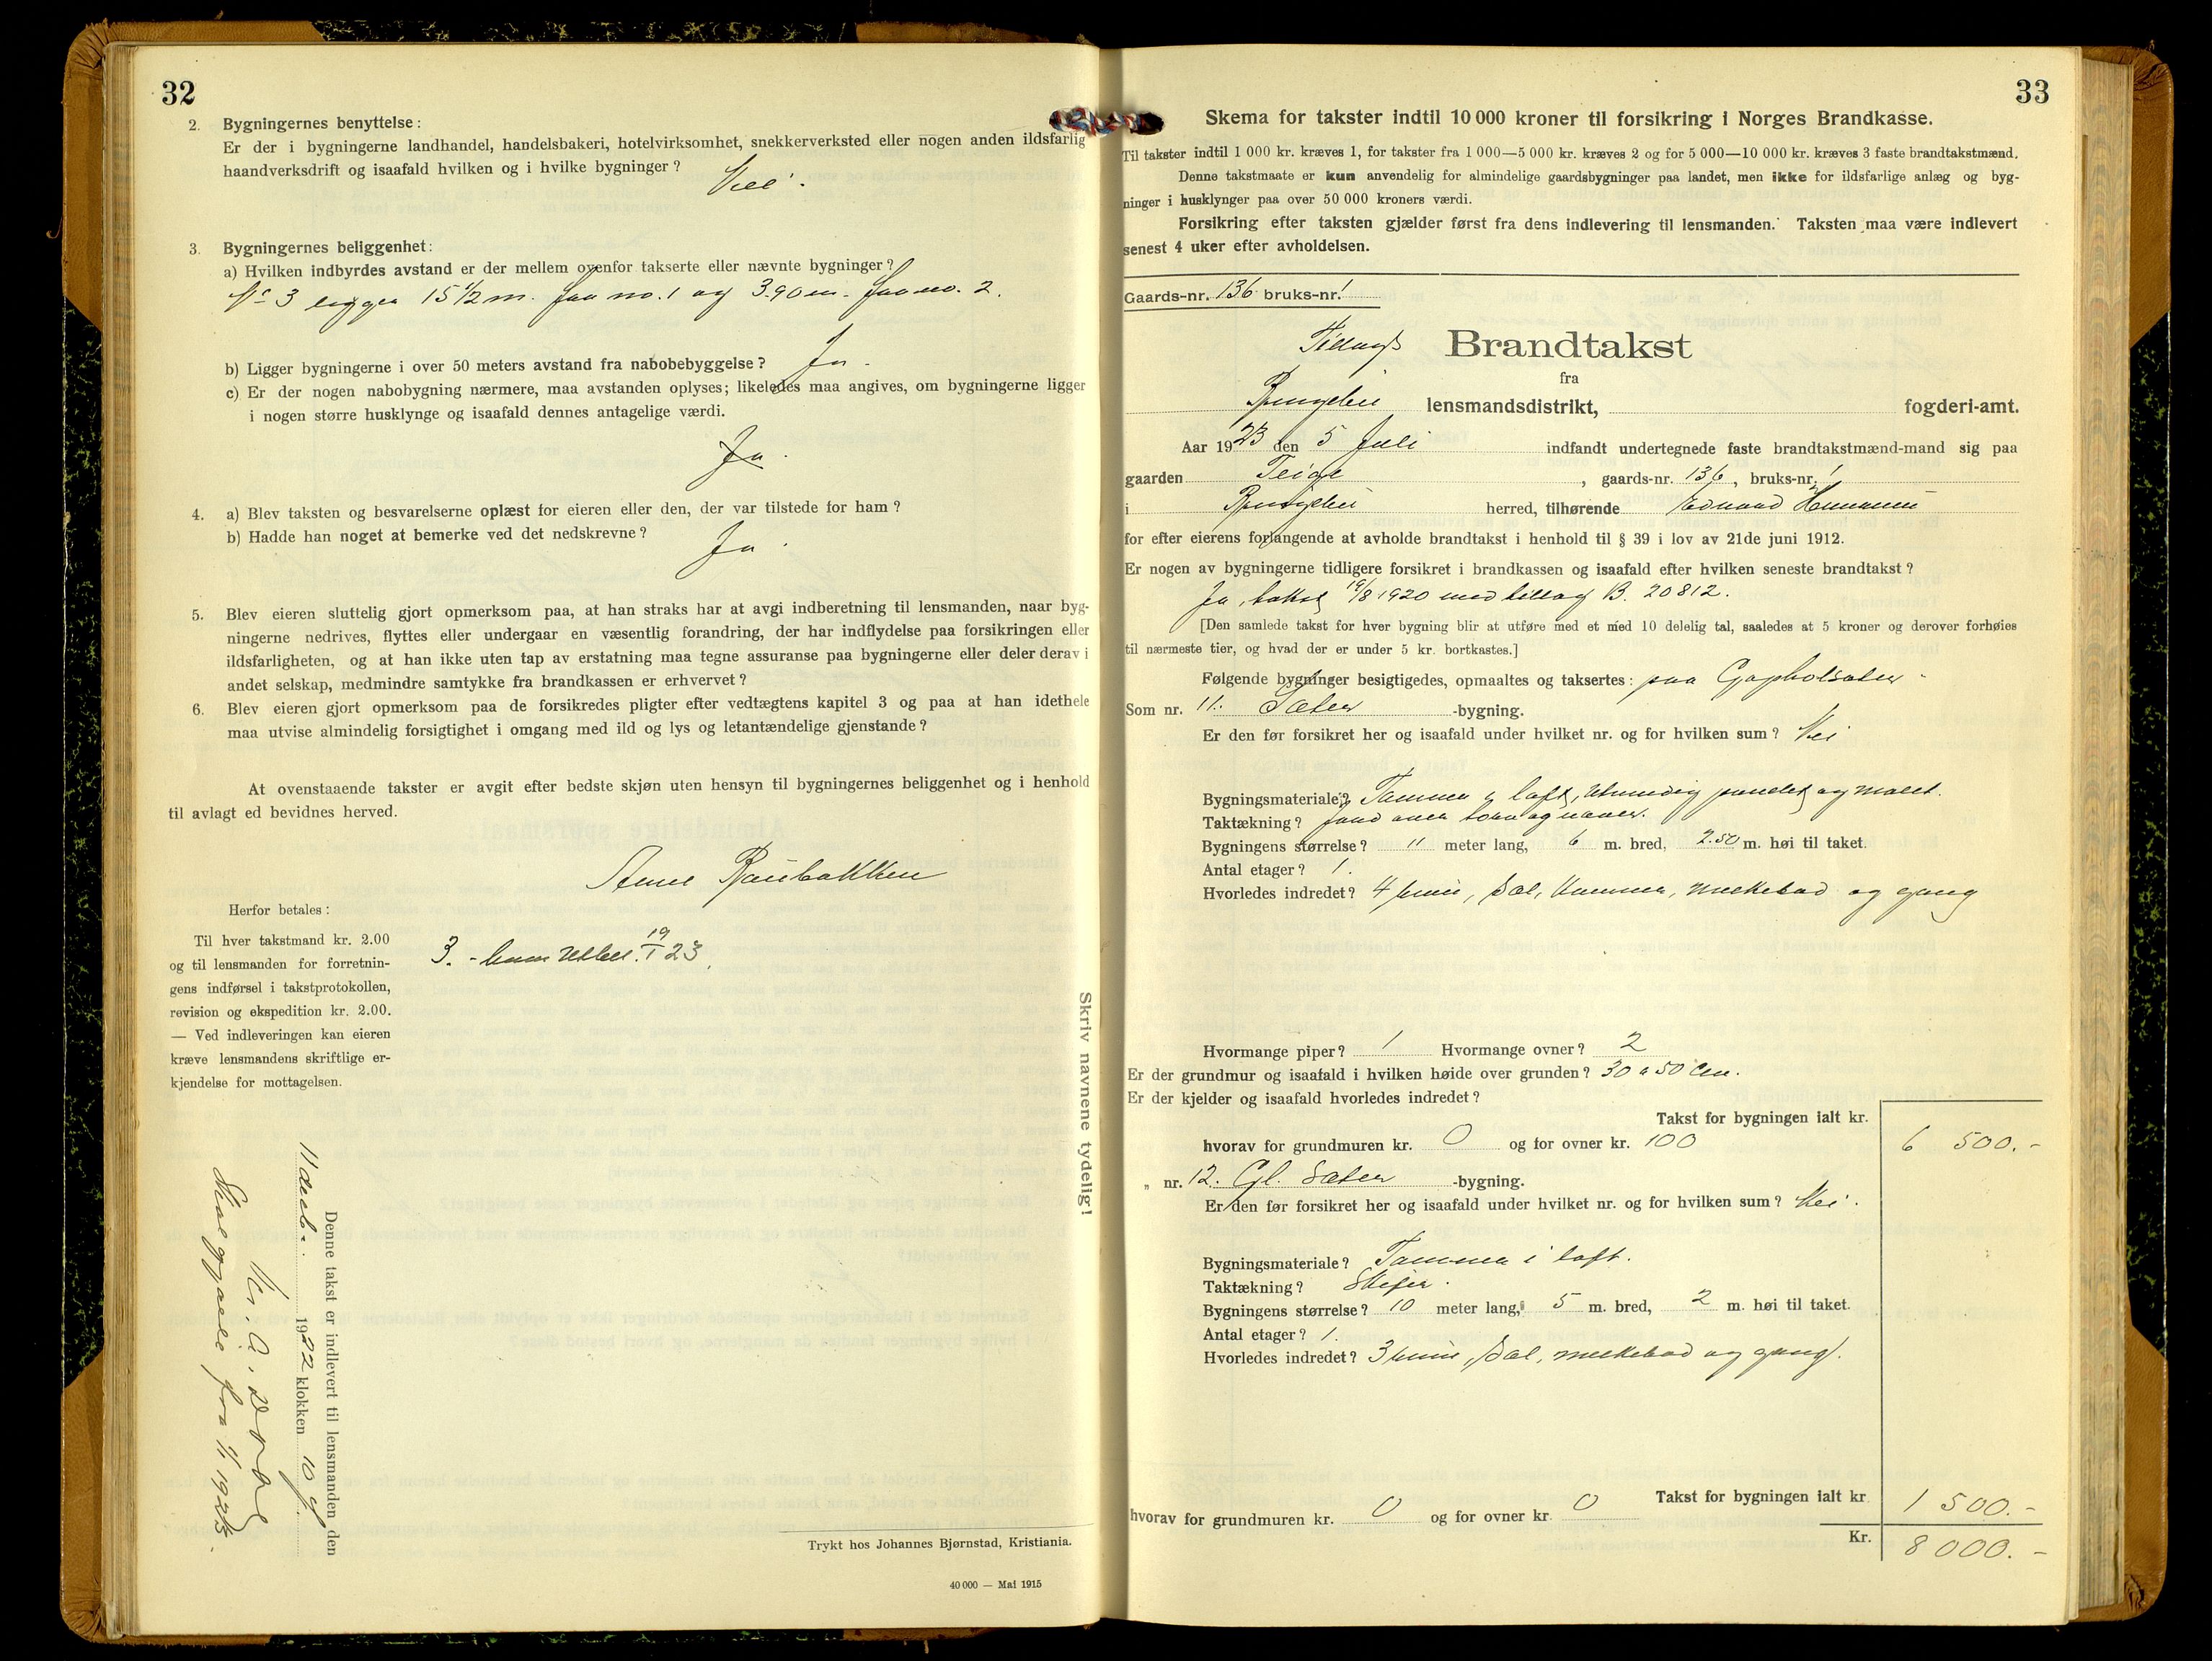 32
2. Bygningernes benyttelse:
Er der i bygningerne landhandel, handelsbakeri, hotelvirksomhet, snekkerverksted eller nogen anden ildsfarlig
haandverksdrift og isaafald hvilken og i hvilke bygninger?
3. Bygningernes beliggenhet:
a) Hvilken indbyrdes avstand er der mellem ovenfor takserte eller nævnte bygninger?
No 3 ligger 15 1/2 m. fra no. 1 og 3.90 m. fra no. 2.
b) Ligger bygningerne i over 50 meters avstand fra nabobebyggelse? Ja.
c) Er der nogen nabobygning nærmere, maa avstanden oplyses; likeledes maa angives, om bygningerne ligger
i nogen større husklynge og isaafald dennes antagelige værdi.
Ja.
4. a) Blev taksten og besvarelserne oplæst for eieren eller den, der var tilstede for ham?
b) Hadde han noget at bemerke ved det nedskrevne? Ja.
5. Blev eieren sluttelig gjort opmerksom paa, at han straks har at avgi indberetning til lensmanden, naar byg-
ningerne nedrives, flyttes eller undergaar en væsentlig forandring, der har indflydelse paa forsikringen eller
ildsfarligheten, og at han ikke uten tap av erstatning maa tegne assuranse paa bygningerne eller deler derav i
andet selskap, medmindre samtykke fra brandkassen er erhvervet?
6. Blev eieren gjort opmerksom paa de forsikredes pligter efter vedtægtens kapitel 3 og paa at han idethele
maa utvise almindelig forsigtighet i omgang med ild og lys og letantændelige gjenstande?
At ovenstaaende takster er avgit efter bedste skjøn uten hensyn til bygningernes beliggenhet og i henhold
til avlagt ed bevidnes herved.
Herfor betales:
Til hver takstmand kr. 2.00
og til lensmanden for forretnin-
gens indførsel i takstprotokollen,
revision og ekspedition kr. 2.00.
— Ved indleveringen kan eieren
kræve lensmandens skriftlige er-
kjendelse for mottagelsen.
Denne takst er indlevert til lensmanden den
11 decbr. 1922 klokken 10 f.
Skal gjælde fra 1/1 1923.
Skriv navnene tydelig!
Trykt hos Johannes Bjørnstad, Kristiania.
40 000 — Mai 1915
33
Skema for takster indtil 10 000 kroner til forsikring i Norges Brandkasse.
Til takster indtil 1 000 kr. kræves 1, for takster fra 1 000—5 000 kr. kræves 2 og for 5 000—10 000 kr. kræves 3 faste brandtakstmænd.
Denne takstmaate er kun anvendelig for almindelige gaardsbygninger paa landet, men ikke for ildsfarlige anlæg og byg-
ninger i husklynger paa over 50 000 kroners værdi.
Forsikring efter taksten gjælder først fra dens indlevering til lensmanden. Taksten maa være indlevert
senest 4 uker efter avholdelsen.
Gaards-nr. 136 bruks-nr. 1
Tillægs Brandtakst
fra
Ringebu lensmandsdistrikt, fogderi-amt.
Aar 1923 den 5 Juli indfandt undertegnede faste brandtakstmænd-mand sig paa
gaarden Teige, gaards-nr. 136, bruks-nr. 1
i Ringebu herred, tilhørende
for efter eierens forlangende at avholde brandtakst i henhold til § 39 i lov av 21de juni 1912.
Er nogen av bygningerne tidligere forsikret i brandkassen og isaafald efter hvilken seneste brandtakst?
Ja, takst 19/8 1920 med tillæg B. 20812.
[Den samlede takst for hver bygning blir at utføre med et med 10 delelig tal, saaledes at 5 kroner og derover forhøies
til nærmeste tier, og hvad der er under 5 kr. bortkastes.]
Følgende bygninger besigtigedes, opmaaltes og taksertes: paa
Som nr. 11. Sæter -bygning.
Er den før forsikret her og isaafald under hvilket nr. og for hvilken sum? Nei
Bygningsmateriale? Tømmer i laft, utvendig panelet og malet.
Taktækning?
Bygningens størrelse? 11 meter lang, 6 m. bred, 2.50 m. høi til taket.
Antal etager? 1.
Hvorledes indredet? 4 rum, sal, kammer, melkebod og gang
Hvormange piper? 1 Hvormange ovner? 2
Er der grundmur og isaafald i hvilken høide over grunden? 30 a 50 Cm.
Er der kjelder og isaafald hvorledes indredet?
Takst for bygningen ialt kr.
hvorav for grundmuren kr. 0 og for ovner kr. 100 6 500.-
" nr. 12. Gl. Sæter -bygning.
Er den før forsikret her og isaafald under hvilket nr. og for hvilken sum? Nei.
Bygningsmateriale? Tømmer i laft.
Taktækning? Skifer.
Bygningens størrelse? 10 meter lang, 5 m. bred, 2 m. høi til taket.
Antal etager? 1.
Hvorledes indredet? 3 rum, sal, melkebod og gang.
Takst for bygningen ialt kr. 1 500.-
hvorav for grundmuren kr. 0 og for ovner kr. 0
Kr. 8 000.-